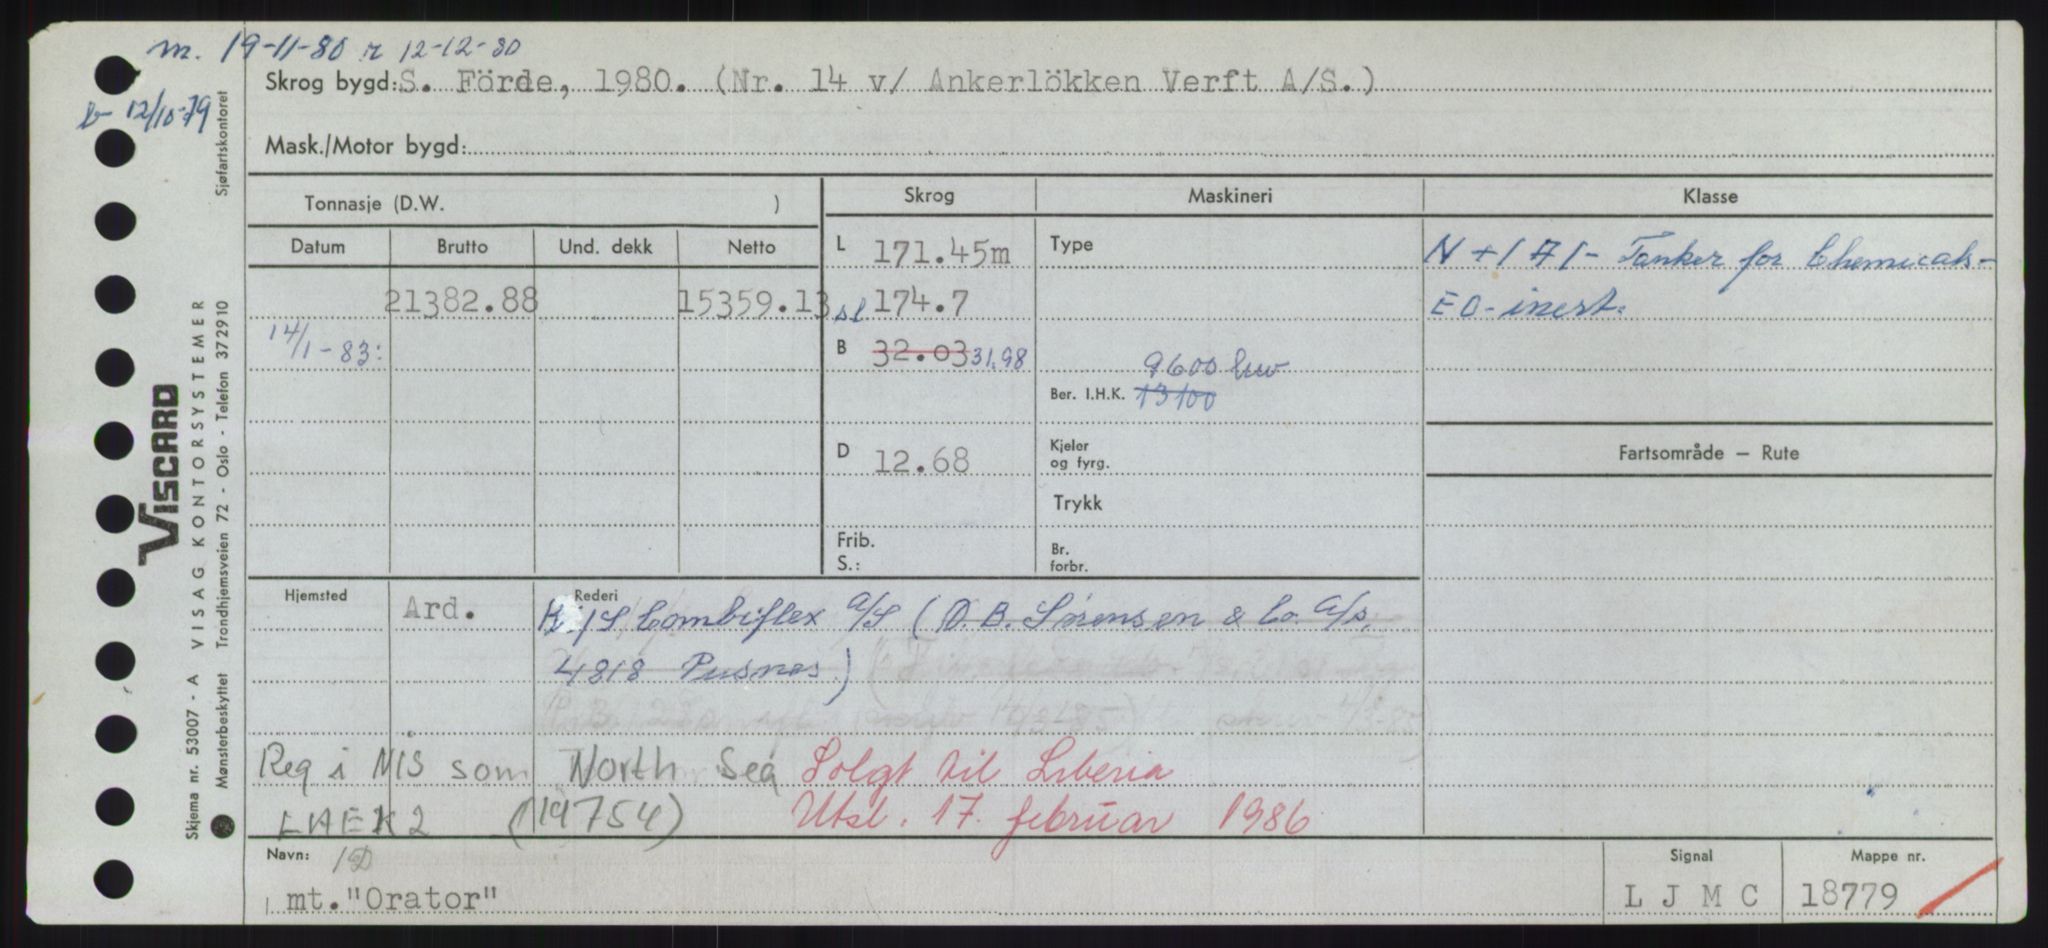 m. 19-11-80 r 12-12-80
b- 12/10-79
Skrog bygd: S. Förde, 1980. (Nr. 14 v/ Ankerlökken Verft A/S.)
Mask./Motor bygd:
Tonnasje (D.W. )
Skrog
Maskineri
Klasse
Datum
Brutto
Und. dekk
Netto
21382.88
15359.13
14/1-83:
L 171.45m
sl 174.7
B 32.03 31,98
D 12.68
Frib.
S.:
Type
9600 hw
Ber. I.H.K. 13100
Kjeler
og fyrg.
Trykk
Br.
forbr.
N +1A1- Tanker for Chemicals-
EO-inert.
Fartsområde – Rute
Hjemsted
Ard.
Rederi
K/S Combiflex A/S (O.B. Sørensen & Co. A/S,
4818 Pusnes)
Reg i NIS som North Sea
LAEK2 (19754)
Solgt til Liberia
Utsl. 17. februar 1986
Navn: 1D
mt."Orator"
Signal
L J M C
Mappe nr.
18779
Sjøfartskontoret
VISCARD
VISAG KONTORSYSTEMER
Trondhjemsveien 72 - Oslo - Telefon 372910
Skjema nr. 53007 - A
Mønsterbeskyttet